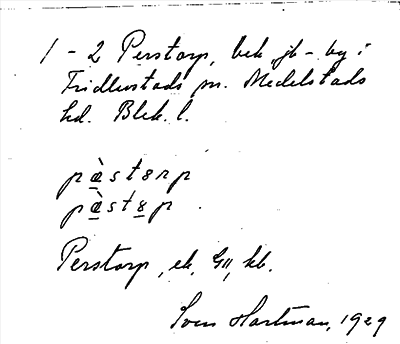 1-2 Perstorp, bek. jb-by i
Fridlevstads sn. Medelstads
hd. Blek. l.
pæ̀stɘrp
pæ̀stɘp.
Perstorp, ek, GII, kb.
Sven Hartman, 1929